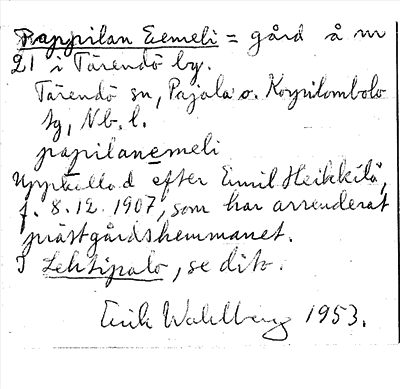 Pappilan Eemeli = gård å nr
21 i Tärendö by.
Tärendö sn, Pajala o. Korpilombolo
tg, Nb. l.
papilanemeli
Uppkallad efter Emil Heikkilä,
f. 8.12.1907, som har arrenderat
prästgårdshemmanet.
I Lehtipalo, se dito.
Erik Wahlberg 1953.